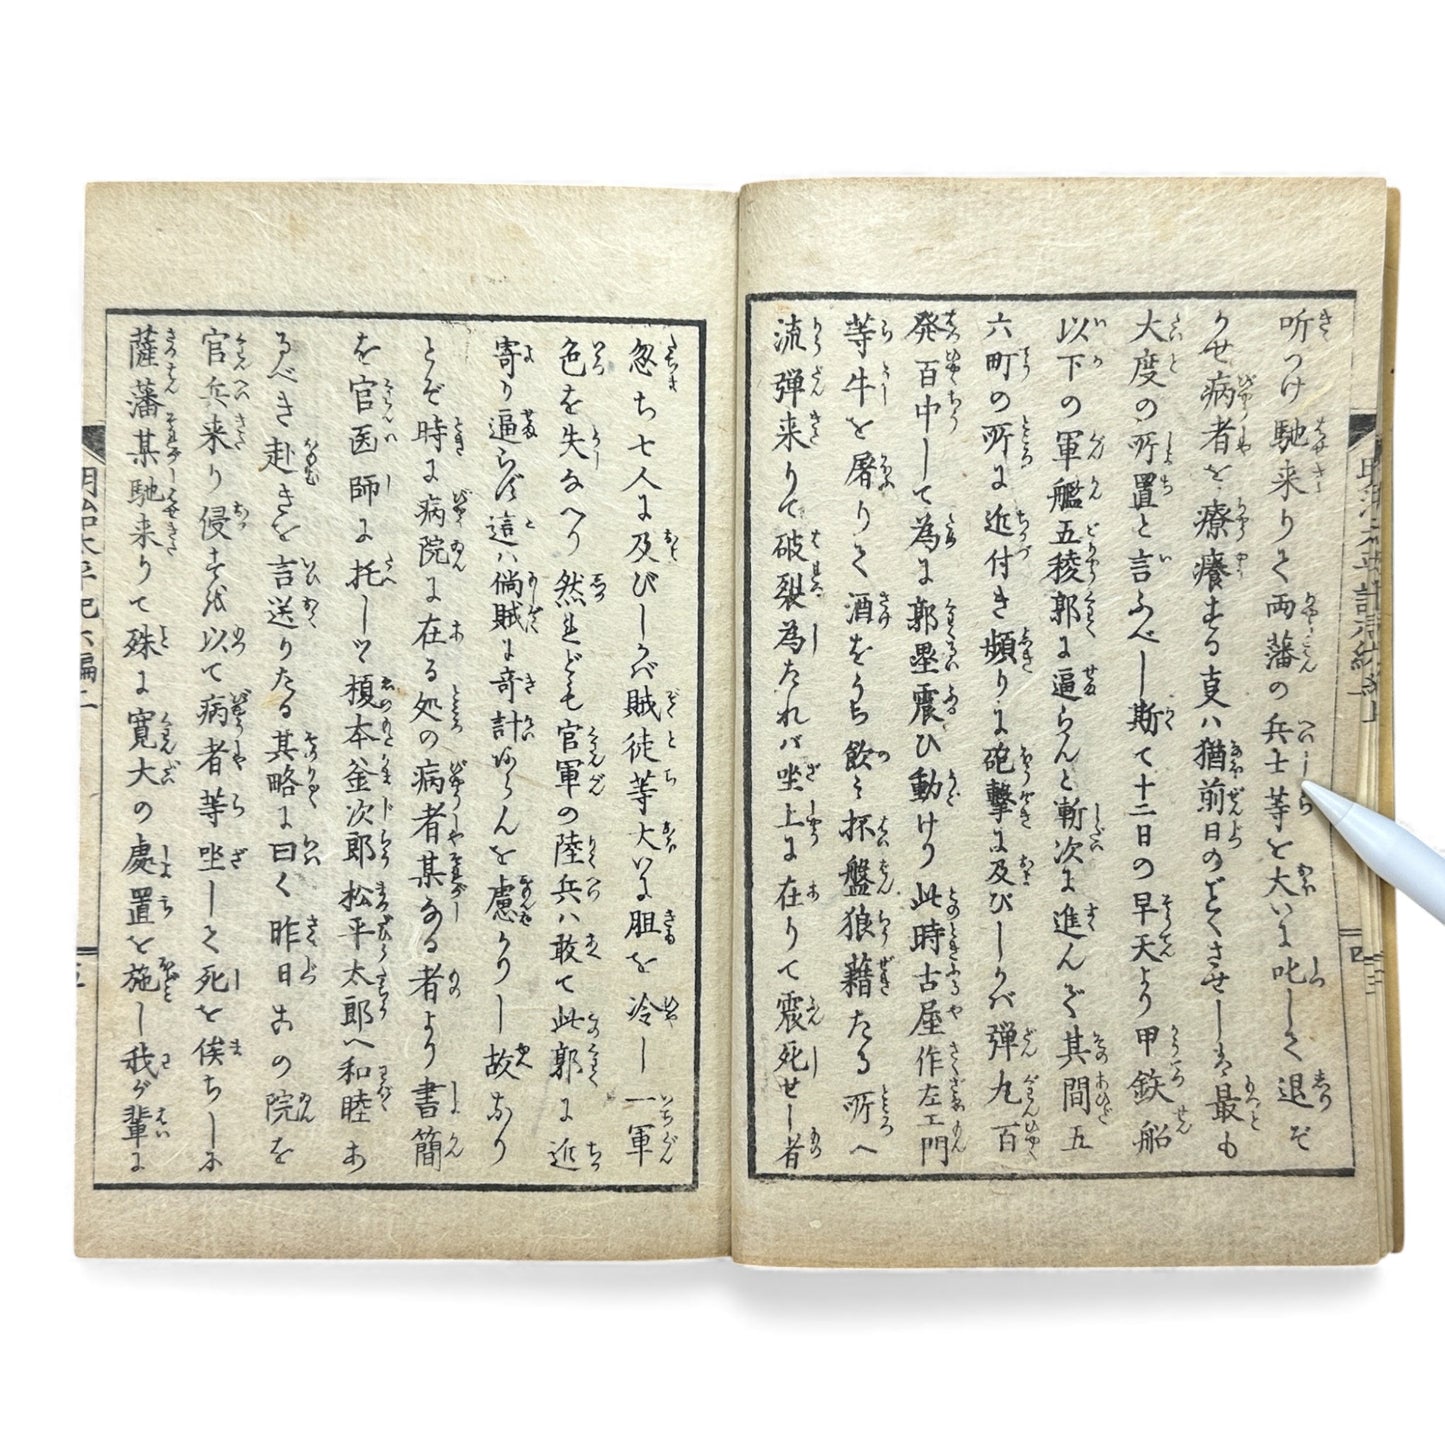 听つけ馳来りて両藩の兵士等を大いに叱して退ぞ
かせ病者を療養する叓ハ猶前日のごとくさせしは最も
大度の所置と言ふべし斯て十二日の早天より甲鉄船
以下の軍艦五稜郭に逼らんと漸次に進んで其間五
六町の所に近付き頻りに砲撃に及びしかば弾丸百
発百中して為に郭塁震ひ動けり此時古屋作左エ門
等牛を屠りて酒をうち飲み杯盤狼藉たる所へ
流弾来りて破裂為たれバ坐上に在りて震死せし者
忽ち七人に及びしかば賊徒等大いに胆を冷し一軍
色を失なへり然れども官軍の陸兵ハ敢て此郭に近
寄り逼らず這ハ倘賊に奇計あらんを慮かりし故なり
とぞ時に病院に在る処の病者某なる者より書簡
を官医師に托しツ榎本釜次郎松平太郎へ和睦あ
るべき赴きを言送りたる其略に曰く昨日古の院を
官兵来り侵すを以て病者等坐して死を俟ちしに
薩藩某馳来りて殊に寛大の處置を施し我が輩に
明治太平記六編二